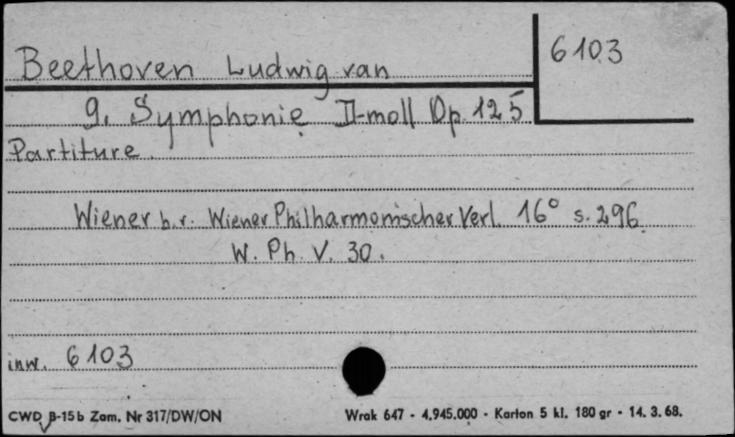 6103
Beethoven Ludwig van
9. Symphonie D-moll Op. 125
Partiture.
Wiener b.r. Wiener Philharmonischer Verl. 16° s. 296.
W. Ph. V. 30.
inw. 6103
CWD B-15b Zam. Nr 317/DW/ON Wrak 647 - 4.945.000 - Karton 5 kl. 180 gr - 14. 3. 68.